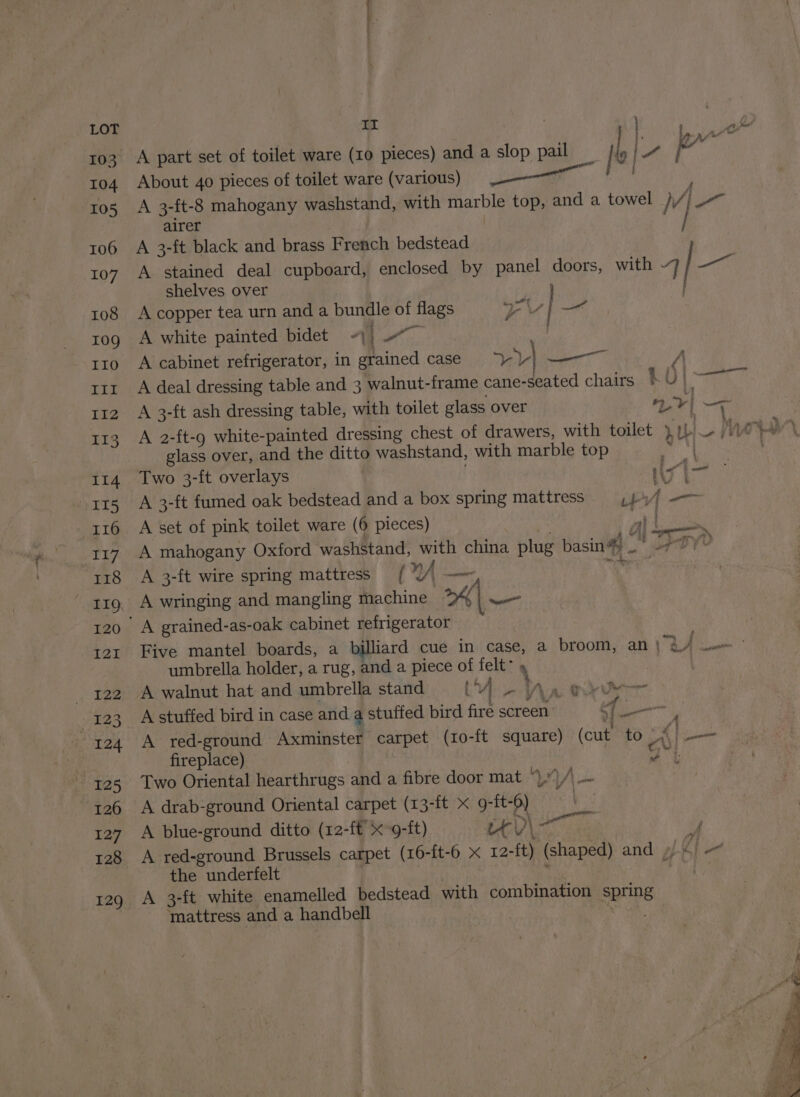 LOT 11
103 A part set of toilet ware (10 pieces) and a slop pail
104 About 40 pieces of toilet ware (various)
105 A 3-ft-8 mahogany washstand, with marble top, and a towel
airer
106 A 3-ft black and brass French bedstead
107 A stained deal cupboard, enclosed by panel doors, with
shelves over
108 A copper tea urn and a bundle of flags
109 A white painted bidet
110 A cabinet refrigerator, in grained case
111 A deal dressing table and 3 walnut-frame cane-seated chairs
112 A 3-ft ash dressing table, with toilet glass over
113 A 2-ft-9 white-painted dressing chest of drawers, with toilet
glass over, and the ditto washstand, with marble top
114 Two 3-ft overlays
115 A 3-ft fumed oak bedstead and a box spring mattress
116 A set of pink toilet ware (6 pieces)
117 A mahogany Oxford washstand, with china plug basin
118 A 3-ft wire spring mattress
119 A wringing and mangling machine
120 A grained-as-oak cabinet refrigerator
121 Five mantel boards, a billiard cue in case, a broom, an
umbrella holder, a rug, and a piece of felt
122 A walnut hat and umbrella stand
123 A stuffed bird in case and a stuffed bird fire screen
124 A red-ground Axminster carpet (10-ft square) (cut to
fireplace)
125 Two Oriental hearthrugs and a fibre door mat
126 A drab-ground Oriental carpet (13-ft × 9-ft-6)
127 A blue-ground ditto (12-ft × 9-ft)
128 A red-ground Brussels carpet (16-ft-6 × 12-ft) (shaped) and
the underfelt
129 A 3-ft white enamelled bedstead with combination spring
mattress and a handbell